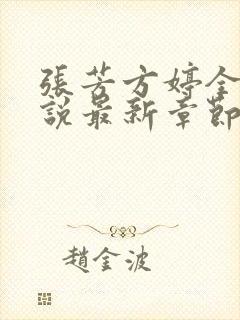 張芳方婷全
說最新章節
趙金波